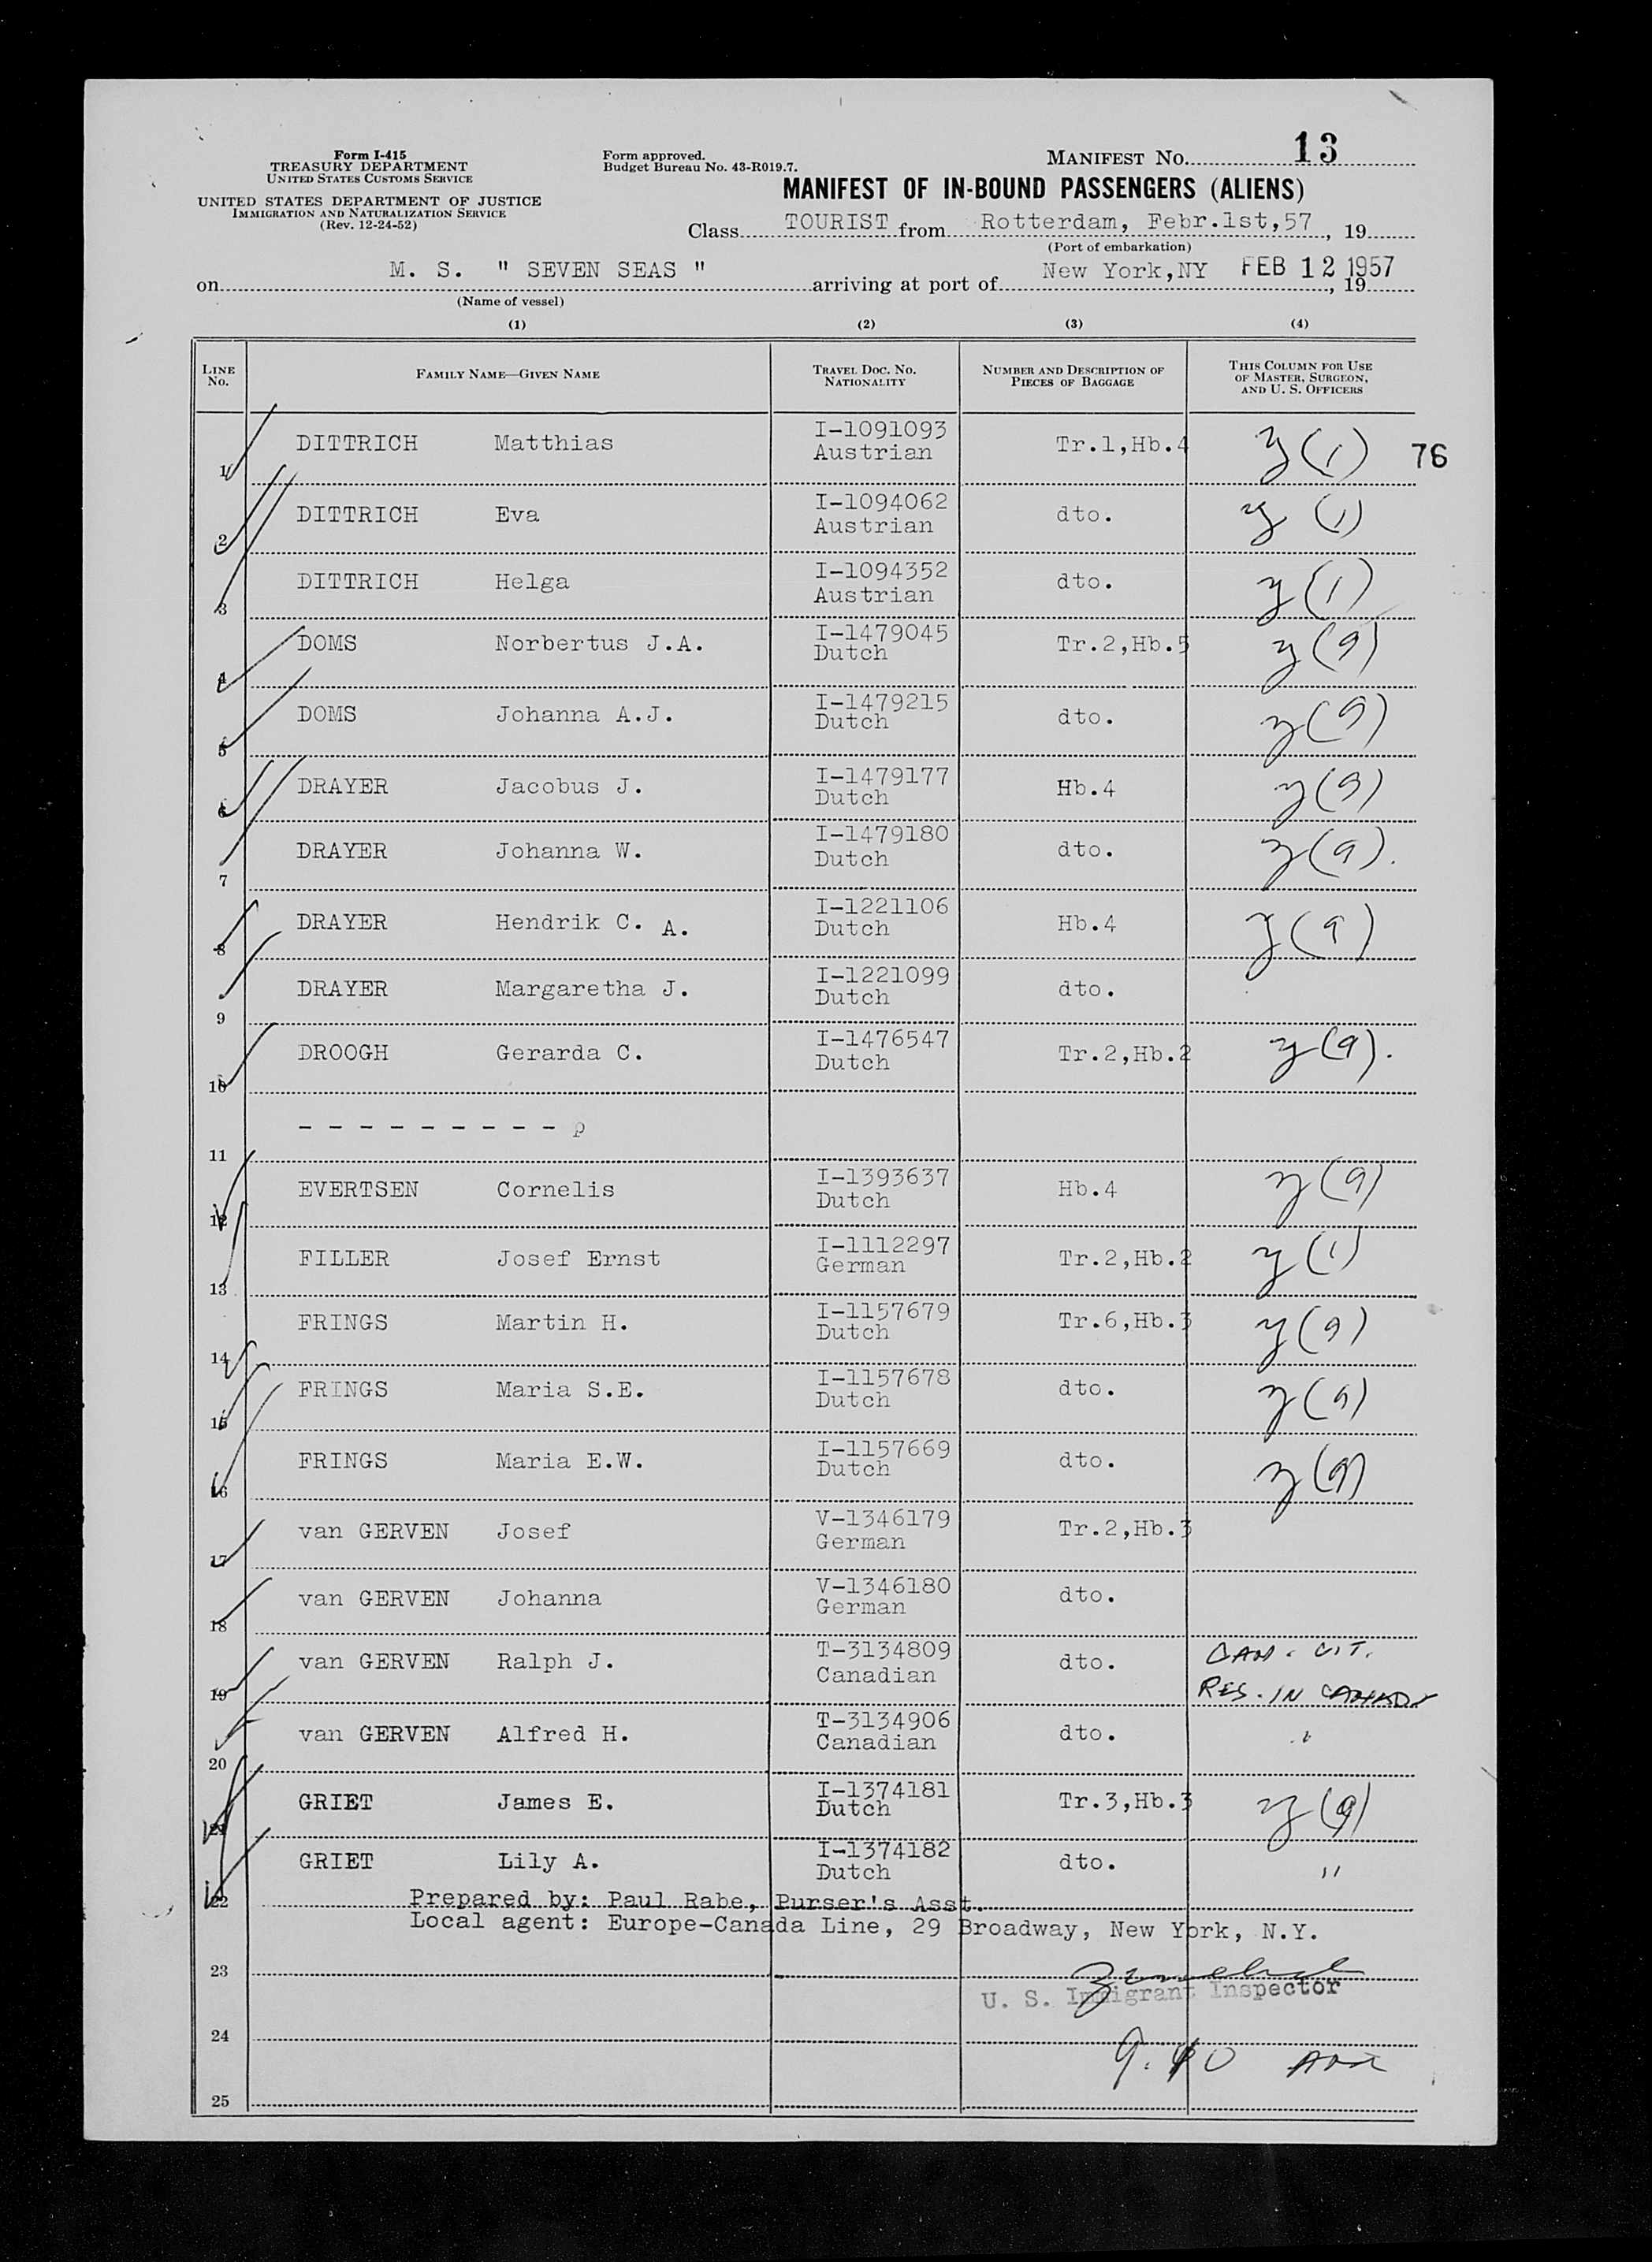 Form I-415
TREASURY DEPARTMENT
UNITED STATES CUSTOMS SERVICE
UNITED STATES DEPARTMENT OF JUSTICE
IMMIGRATION AND NATURALIZATION SERVICE
(Rev. 12-24-52)
Form approved.
Budget Bureau No. 43-R019.7.
MANIFEST NO. 13
MANIFEST OF IN-BOUND PASSENGERS (ALIENS)
Class TOURIST from Rotterdam, Febr.1st,57, 19
(Port of embarkation)
on M. S. " SEVEN SEAS " arriving at port of New York,NY FEB 12 1957, 19
(Name of vessel)
(1) (2) (3) (4)
LINE No. FAMILY NAME—GIVEN NAME TRAVEL DOC. NO. NATIONALITY NUMBER AND DESCRIPTION OF PIECES OF BAGGAGE THIS COLUMN FOR USE OF MASTER, SURGEON, AND U. S. OFFICERS
1 DITTRICH Matthias I-1091093 Austrian Tr.1,Hb.4 (1) 76
2 DITTRICH Eva I-1094062 Austrian dto. (1)
3 DITTRICH Helga I-1094352 Austrian dto. (1)
4 DOMS Norbertus J.A. I-1479045 Dutch Tr.2,Hb.5 (9)
5 DOMS Johanna A.J. I-1479215 Dutch dto. (9)
6 DRAYER Jacobus J. I-1479177 Dutch Hb.4 (9)
7 DRAYER Johanna W. I-1479180 Dutch dto. (9).
8 DRAYER Hendrik C. A. I-1221106 Dutch Hb.4 (9)
9 DRAYER Margaretha J. I-1221099 Dutch dto.
10 DROOGH Gerarda C. I-1476547 Dutch Tr.2,Hb.2 (9).
11 - - - - - - - - -
12 EVERTSEN Cornelis I-1393637 Dutch Hb.4 (9)
13 FILLER Josef Ernst I-1112297 German Tr.2,Hb.2 (1)
14 FRINGS Martin H. I-1157679 Dutch Tr.6,Hb.3 (9)
15 FRINGS Maria S.E. I-1157678 Dutch dto. (9)
16 FRINGS Maria E.W. I-1157669 Dutch dto. (9)
17 van GERVEN Josef V-1346179 German Tr.2,Hb.3
18 van GERVEN Johanna V-1346180 German dto.
19 van GERVEN Ralph J. T-3134809 Canadian dto. CAN. CIT. RES. IN CANADA
20 van GERVEN Alfred H. T-3134906 Canadian dto. "
21 GRIET James E. I-1374181 Dutch Tr.3,Hb.3 (9)
22 GRIET Lily A. I-1374182 Dutch dto. "
Prepared by: Paul Rabe, Purser's Asst.
Local agent: Europe-Canada Line, 29 Broadway, New York, N.Y.
23
U. S. Immigrant Inspector
24
25